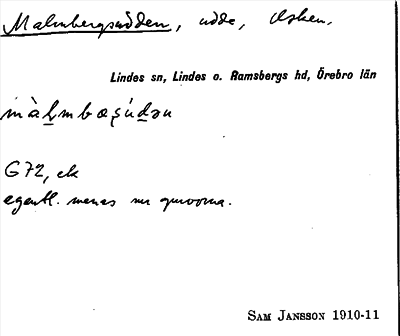 Malmbergsudden, udde, Asken.
Lindes sn, Lindes o. Ramsbergs hd, Örebro län
G72, ek
egentl. menas
SAM JANSSON 1910-11